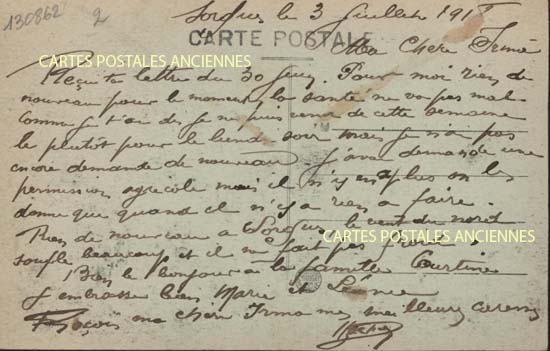 130862 2
Sorgues le 3 Juillet 191
CARTE POSTALE
Ma Chere Irma
CARTES POSTALES ANCIENNES
Reçu ta lettre du 30 Juin. Pour moi rien de
nouveau pour le moment la santé ne va pas mal
comme je t'ai dis je ne puis venir de cette semaine
le plutôt pour le lundi soir mais je n'ai pas
encore demande de nouveau j'avai demande une
permission agricole mais il n'y en a plus on les
donne que quand il n'y a rien a faire.
Rien de nouveau a Sorgues le vent du nord
CARTES POSTALES ANCIENNES
souffle beaucoup et il ne fait pas froid
Bien le bonjour a la famille Courtine
J'embrasse bien Marie et Leonce
Reçois ma chere Irma mes meilleurs caresses